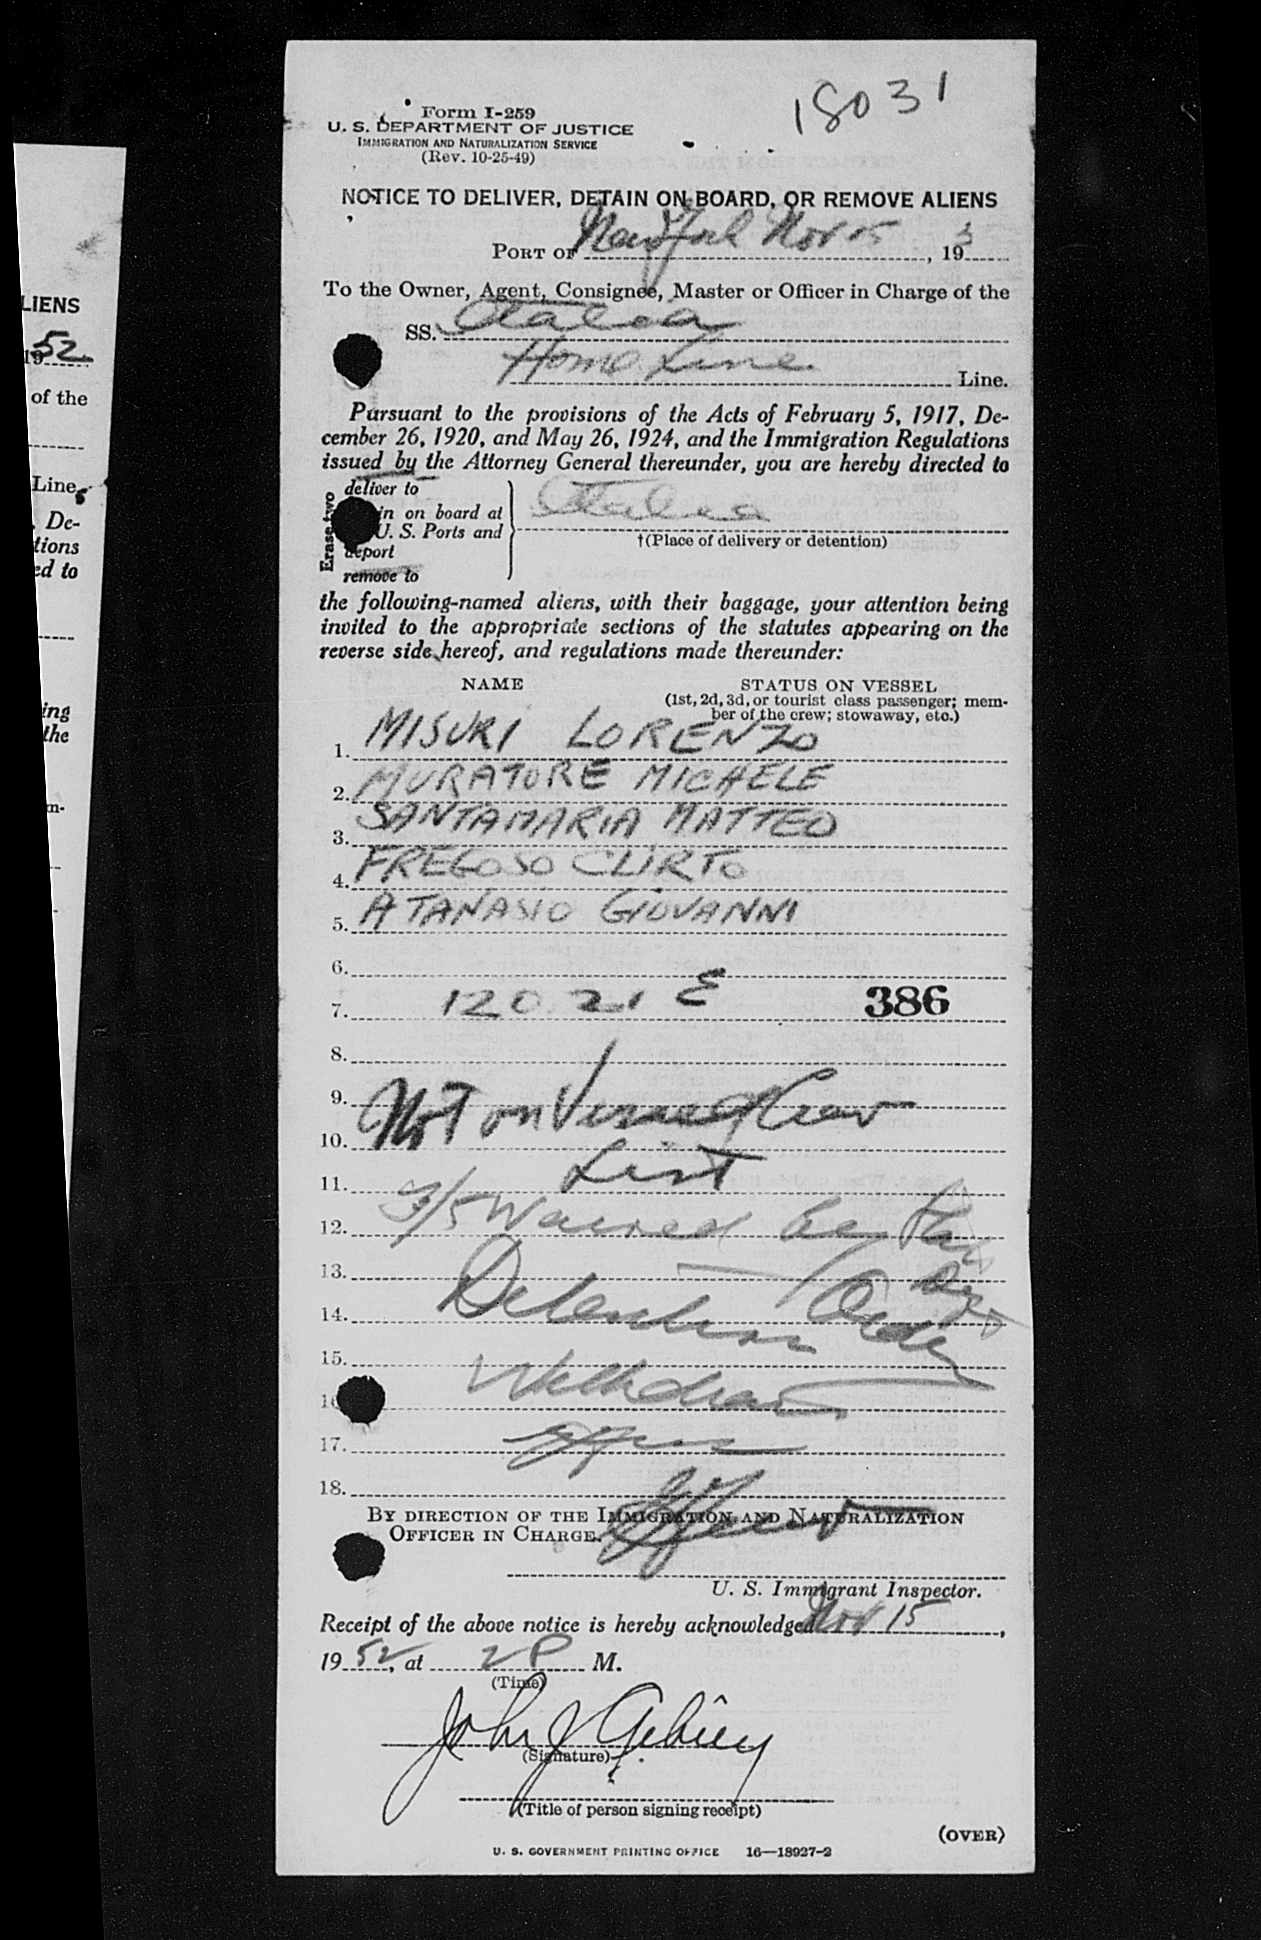 18031
Form I-259
U. S. DEPARTMENT OF JUSTICE
IMMIGRATION AND NATURALIZATION SERVICE
(Rev. 10-25-49)
NOTICE TO DELIVER, DETAIN ON BOARD, OR REMOVE ALIENS
PORT OF New York Nov 15, 193
To the Owner, Agent, Consignee, Master or Officer in Charge of the
SS. Italia
Home Line Line.
Pursuant to the provisions of the Acts of February 5, 1917, De-
cember 26, 1920, and May 26, 1924, and the Immigration Regulations
issued by the Attorney General thereunder, you are hereby directed to
Erase two
deliver to
in on board at
U. S. Ports and
deport
remove to
Italia
†(Place of delivery or detention)
the following-named aliens, with their baggage, your attention being
invited to the appropriate sections of the statutes appearing on the
reverse side hereof, and regulations made thereunder:
NAME STATUS ON VESSEL
(1st, 2d, 3d, or tourist class passenger; mem-
ber of the crew; stowaway, etc.)
1. MISURI LORENZO
2. MURATORE MICHELE
3. SANTAMARIA MATTEO
4. FREGOSO CLIRTO
5. ATANASIO GIOVANNI
6.
7. 120.21 E 386
8.
9.
10. Not on Vessel Crew
11. List
12. 3/5 Waived by
13.
14. Detention Order
15.
16. Withdrawn
17.
18.
BY DIRECTION OF THE IMMIGRATION AND NATURALIZATION
OFFICER IN CHARGE.
U. S. Immigrant Inspector.
Receipt of the above notice is hereby acknowledged Nov 15,
1952, at 2 P M.
(Time)
John J
(Signature)
(Title of person signing receipt)
(OVER)
U. S. GOVERNMENT PRINTING OFFICE 16—18927-2
LIENS
1952
of the
Line.
. De-
tions
ed to
ing
the
m-